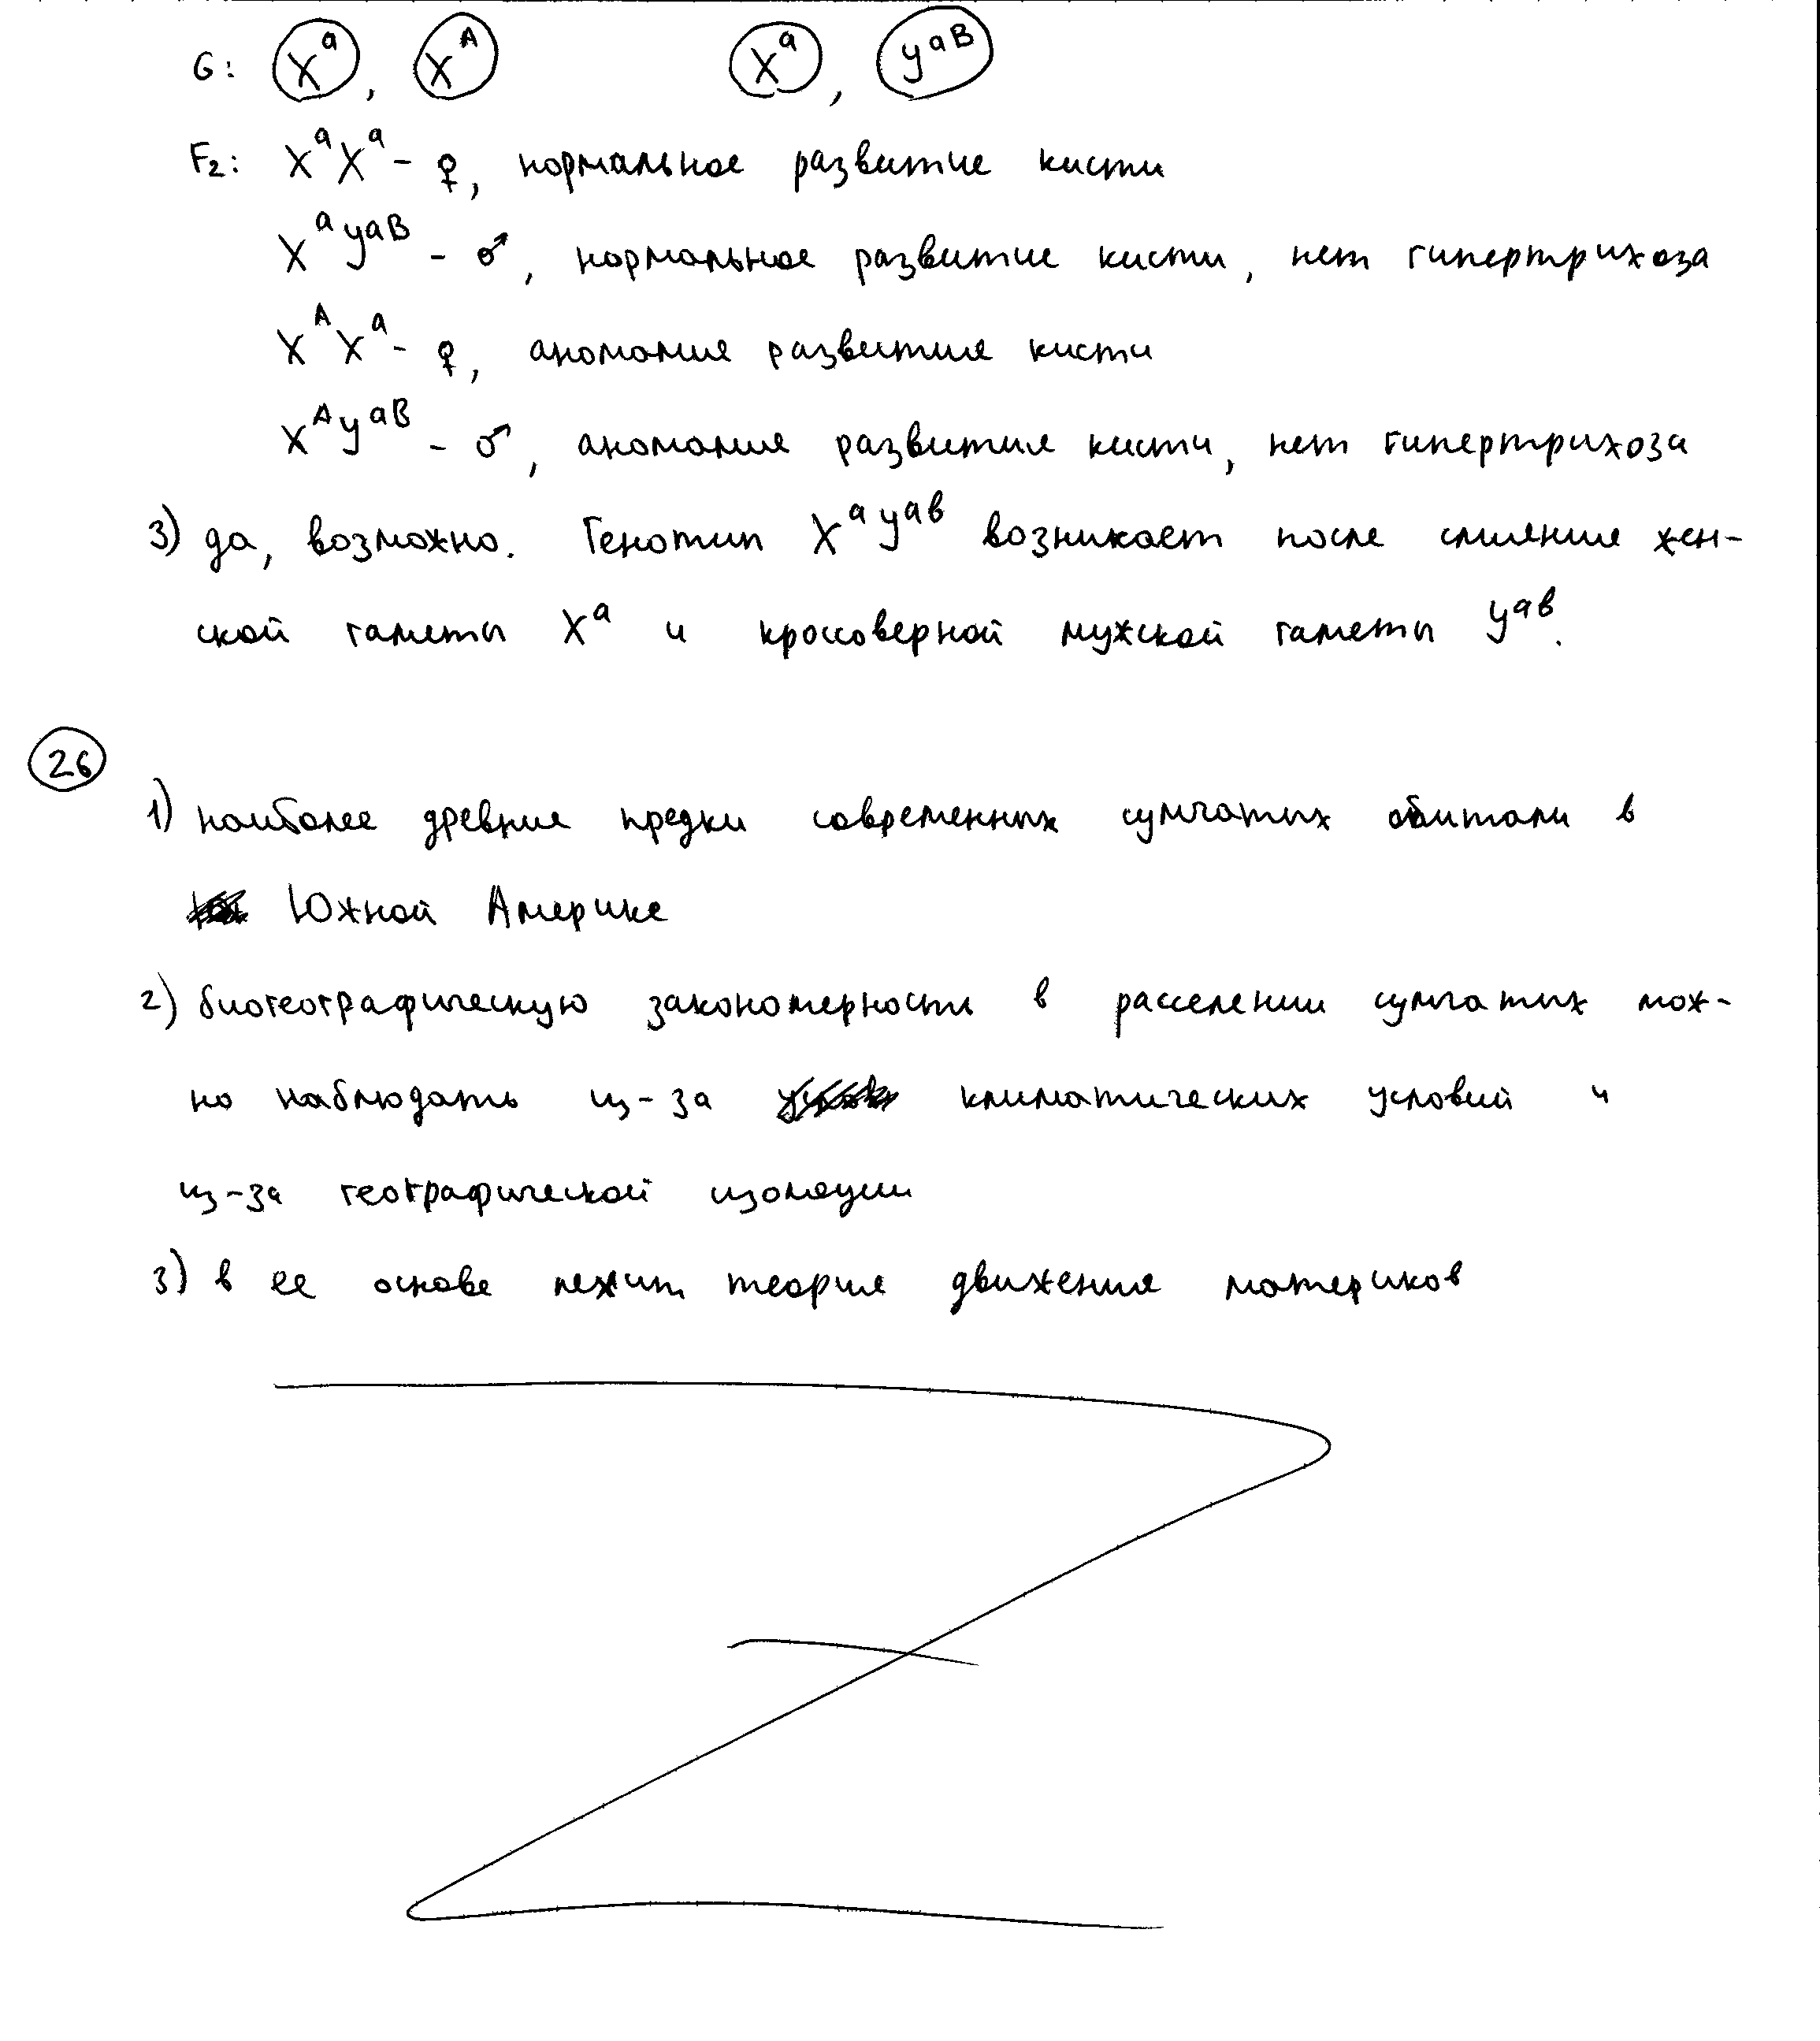 G: X^a, X^A X^a, y^aB
F2: X^a X^a - ♀, нормальное развитие кисти
X^a y^aB - ♂, нормальное развитие кисти, нет гипертрихоза
X^A X^a - ♀, аномалия развития кисти
X^A y^aB - ♂, аномалия развития кисти, нет гипертрихоза
3) да, возможно. Генотип X^a y^ab возникает после слияния жен-
ской гаметы X^a и кроссоверной мужской гаметы y^ab.
26
1) наиболее древние предки современных сумчатых обитали в
Южной Америке
2) биогеографическую закономерность в расселении сумчатых мож-
но наблюдать из-за климатических условий и
из-за географической изоляции
3) в ее основе лежит теория движения материков